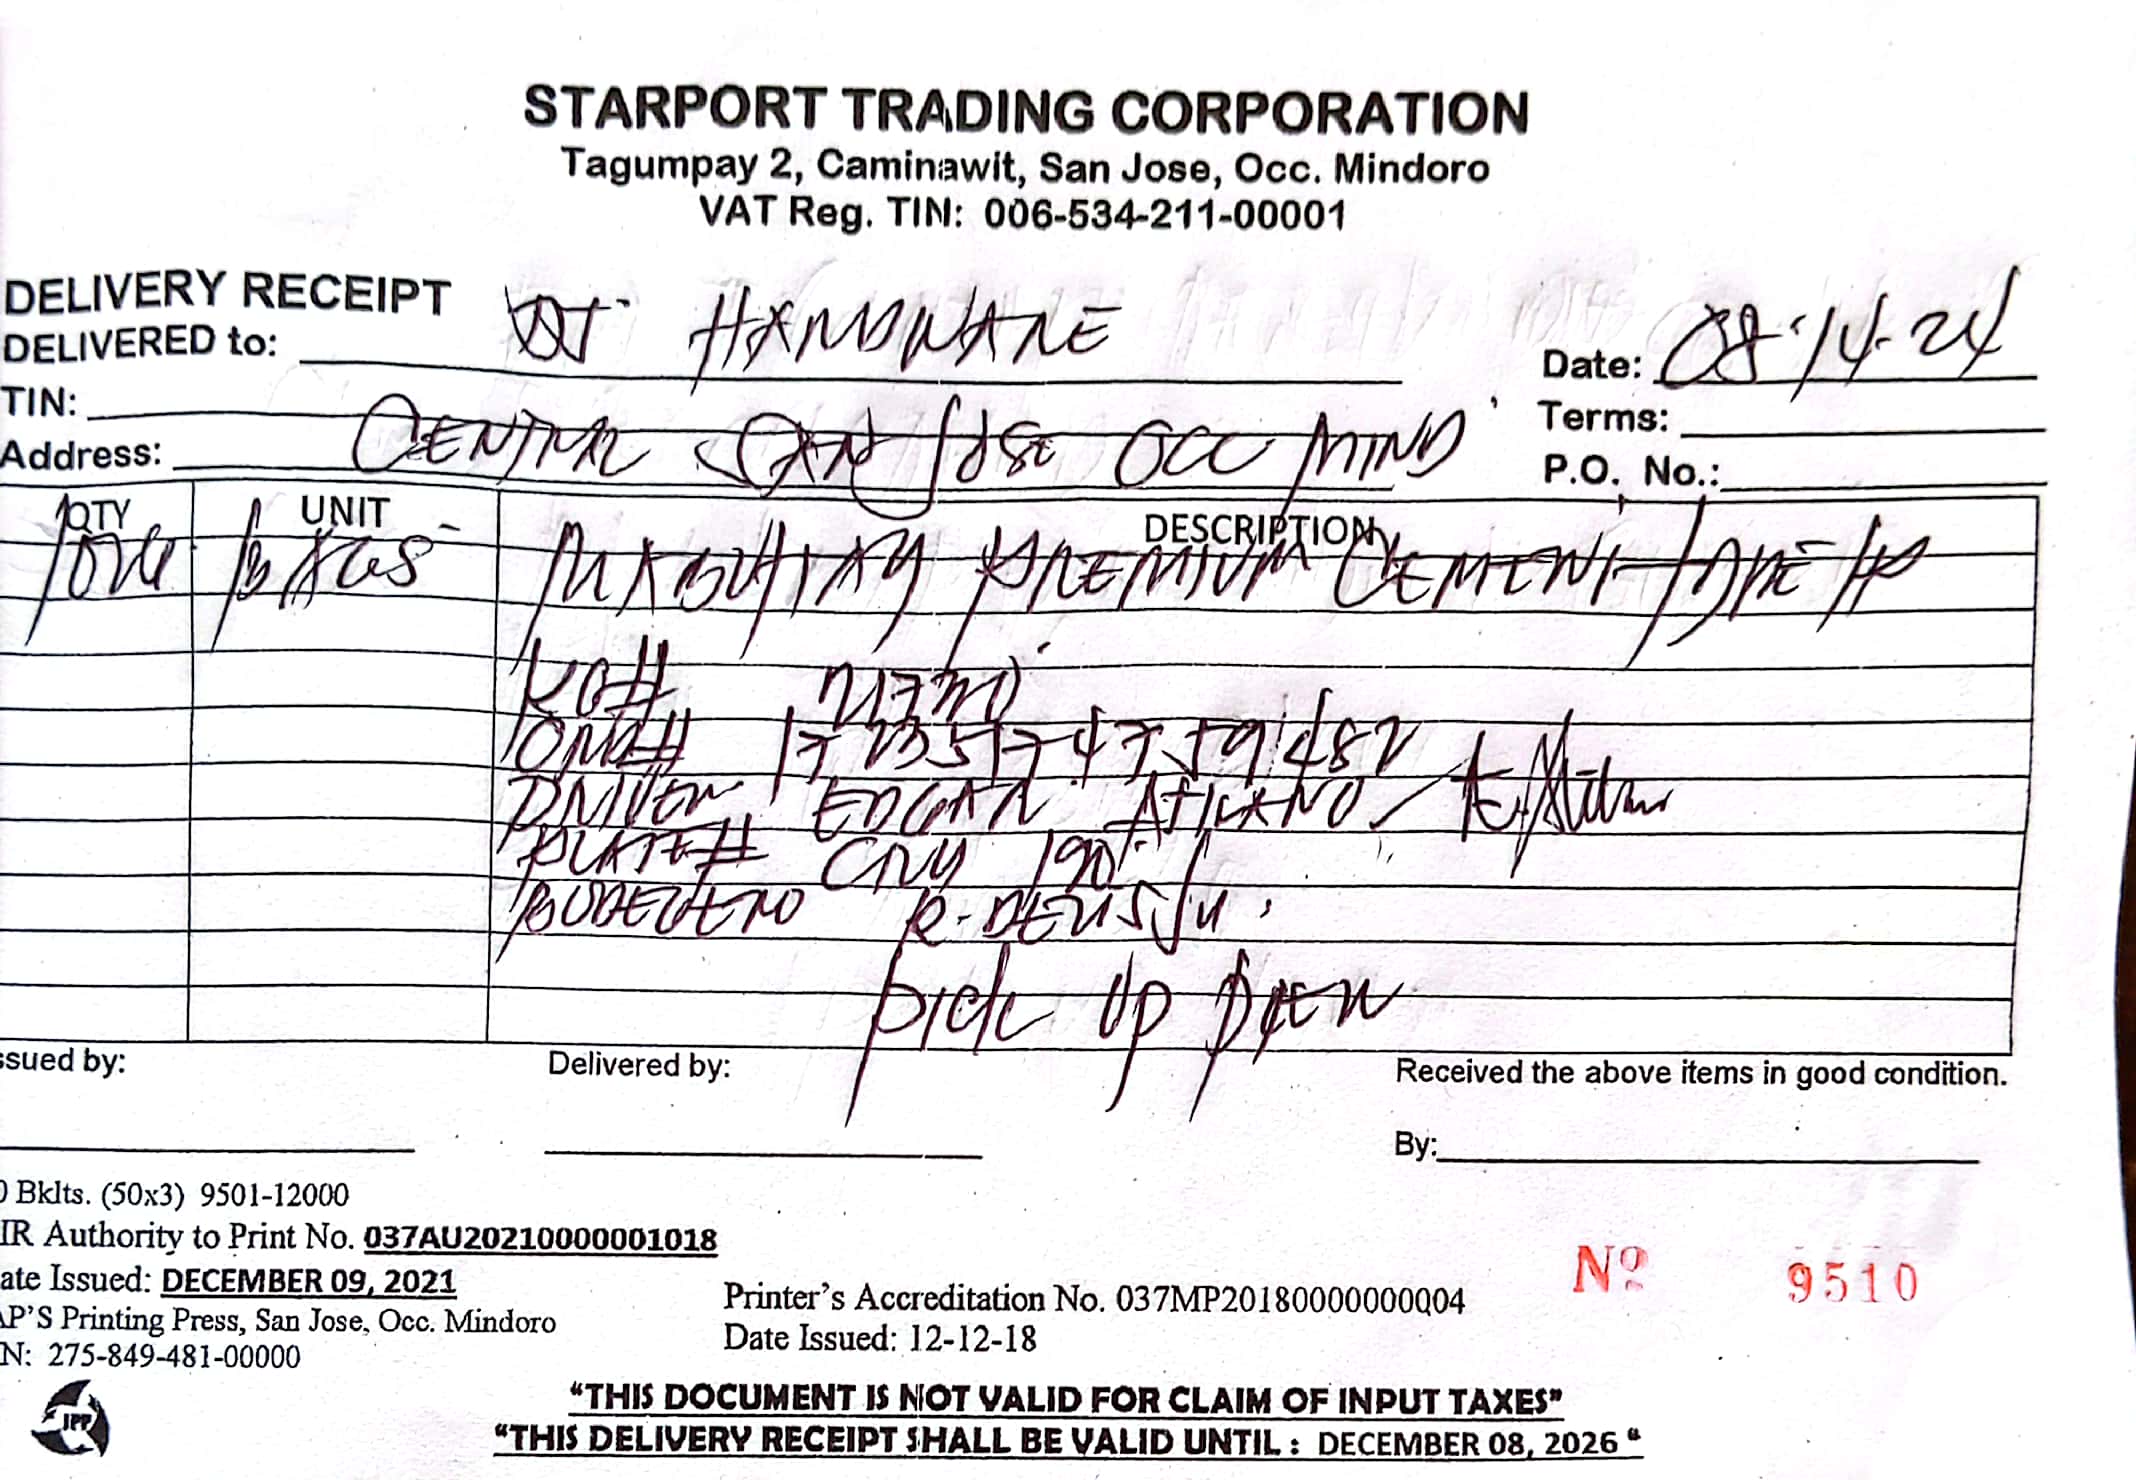 STARPORT TRADING CORPORATION
Tagumpay 2, Caminawit, San Jose, Occ. Mindoro
VAT Reg. TIN: 006-534-211-00001
DELIVERY RECEIPT
DELIVERED to: HARDWARE
Date: 08-14-24
TIN:
Terms:
Address: CENTRAL SAN JOSE OCC MIND
P.O. No.:
QTY UNIT DESCRIPTION
BAGS PREMIUM CEMENT TYPE 1P
21730
DRIVER EDGAR ATILANO
PLATE# CNY 190
BODEGERO
PICK UP
ssued by:
Delivered by:
Received the above items in good condition.
By:
Bklts. (50x3) 9501-12000
IR Authority to Print No. 037AU20210000001018
ate Issued: DECEMBER 09, 2021
P'S Printing Press, San Jose, Occ. Mindoro
N: 275-849-481-00000
Printer's Accreditation No. 037MP20180000000004
Date Issued: 12-12-18
Nº 9510
JPP
“THIS DOCUMENT IS NOT VALID FOR CLAIM OF INPUT TAXES”
“THIS DELIVERY RECEIPT SHALL BE VALID UNTIL : DECEMBER 08, 2026 “